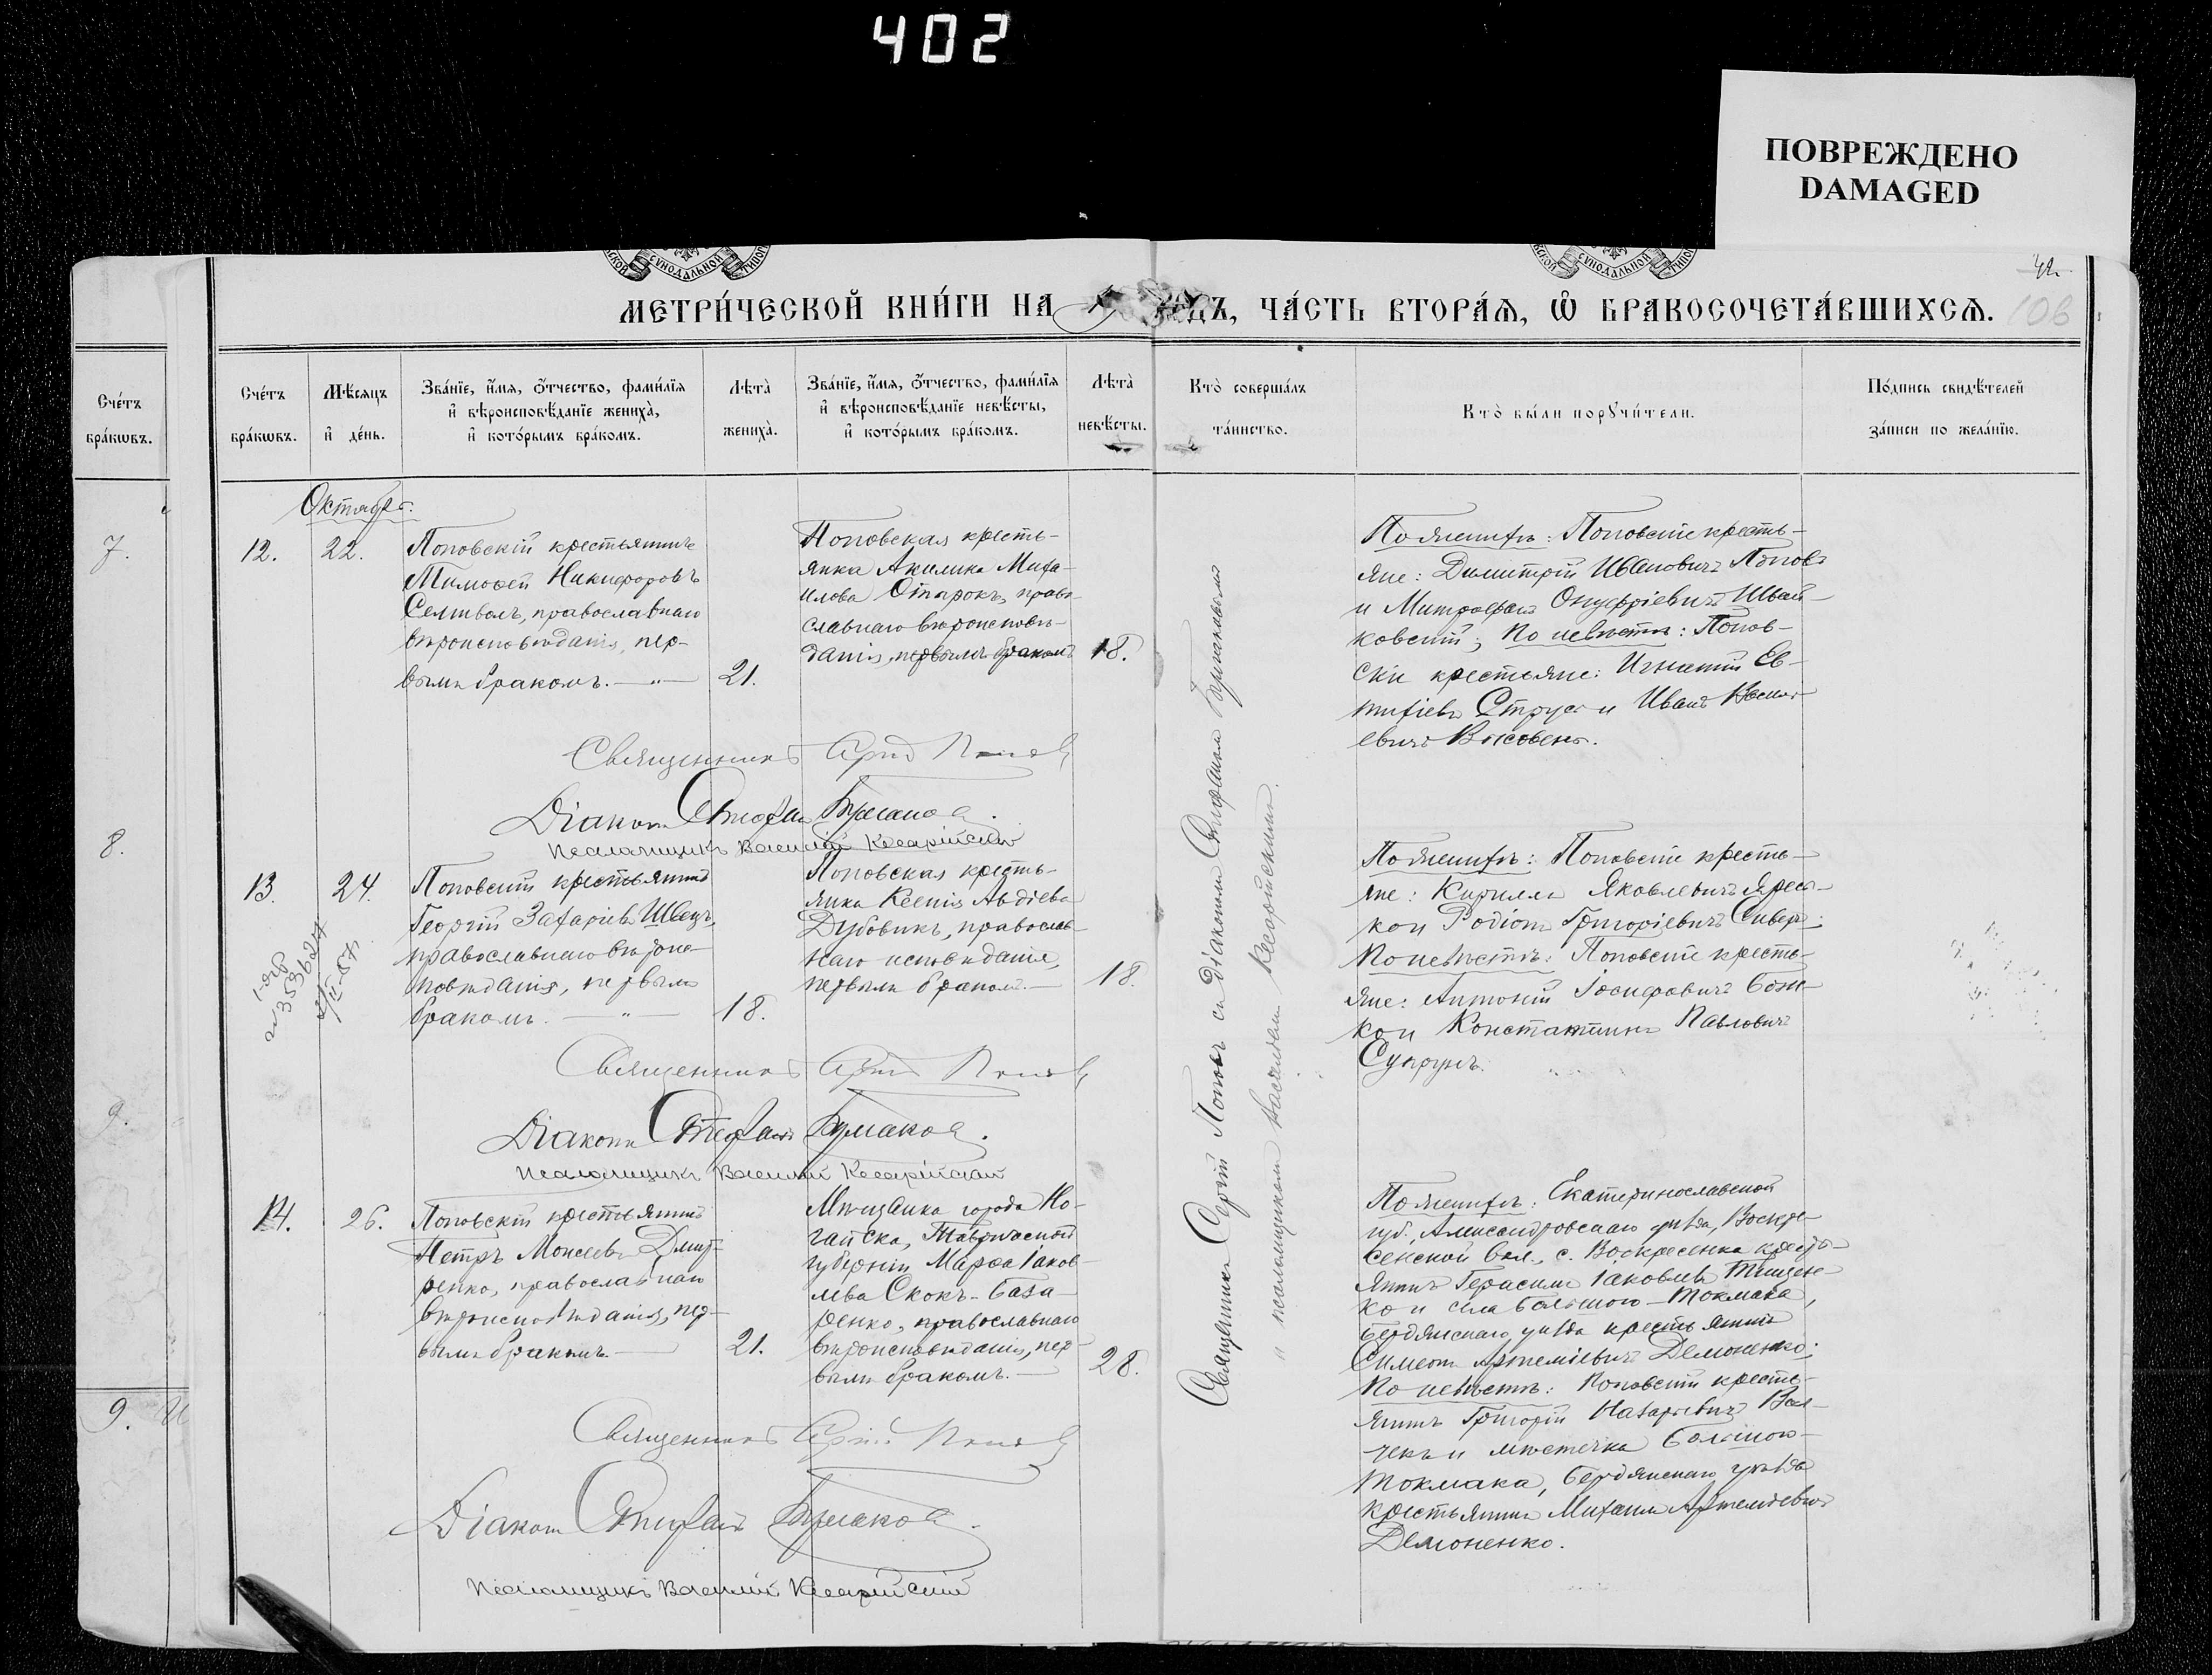 402
ПОВРЕЖДЕНО
DAMAGED
42
106
МЕТРИ́ЧЕСКОЙ КНИ́ГИ НА ГОДЪ, ЧА́СТЬ ВТОРА́Ѧ, Ѽ БРАКОСОЧЕТА́ВШИХСѦ.
Сче́тъ бра́кѡвъ.
7.
8.
9.
9. И
Сче́тъ бра́кѡвъ.
Мѣ́сяцъ и де́нь.
Зва́нїе, и́мя, о́тчество, фами́лїя
и вѣроисповѣ́данїе жениха̀,
и кото́рымъ бра́комъ.
Лѣта̀ жениха̀.
Зва́нїе, и́мя, о́тчество, фами́лїя
и вѣроисповѣ́данїе невѣ́сты,
и кото́рымъ бра́комъ.
Лѣта̀ невѣ́сты.
Кто̀ соверша́лъ та́инство.
Кто̀ бы́ли порꙋчи́тели.
По́дпись свидѣ́телей за́писи по жела́нїю.
Октябрь.
12. 22.
Поповскій крестьянинъ
Тимофей Никифоровъ
Селиволъ, православнаго
вѣроисповѣданія, пер-
вымъ бракомъ. — " —
21.
Поповская кресть-
янка Акилина Миха-
илова Отарокъ, право-
славнаго вѣроисповѣ-
данія, первымъ бракомъ
18.
По женихѣ: Поповскіе кресть-
яне: Димитрій Ивановичъ Поповъ
и Митрофанъ Онуфріевичъ Иваш-
ковскій; По невѣстѣ: Попов-
скіе крестьяне: Игнатій Ев-
тихіевъ Струсъ и Иванъ Васил-
евичъ
Священникъ Сергій Поповъ
Діаконъ Стефанъ Бурлаковъ.
Псаломщикъ Василій Кесарійскій
13. 24.
353624
Поповскій крестьянинъ
Георгій Захаріевъ Швецъ,
православнаго вѣроис-
повѣданія, первымъ
бракомъ. — " —
18.
Поповская кресть-
янка Ксенія Авдіева
Дубовикъ, православ-
наго исповѣданія,
первымъ бракомъ. —
18.
По женихѣ: Поповскіе кресть-
яне: Кириллъ Яковлевичъ Яресь-
ко и Родіонъ Григоріевичъ Сиверъ;
По невѣстѣ: Поповскіе кресть-
яне: Антоній Іосифовичъ Бож-
ко и Константинъ Павловичъ
Супрунъ.
Священникъ Сергій Поповъ
Діаконъ Стефанъ Бурлаковъ.
Псаломщикъ Василій Кесарійскій
14. 26.
Поповскій крестьянинъ
Петръ Моисеевъ Дмит-
ренко, православнаго
вѣроисповѣданія, пер-
вымъ бракомъ. —
21.
Мѣщанка города Но-
гайска, Таврической
губерніи Марфа Іаков-
лева Скокъ-База-
ренко, православнаго
вѣроисповѣданія, пер-
вымъ бракомъ. —
28.
По женихѣ: Екатеринославской
губ., Александровскаго уѣзда, Воскре-
сенской вол., с. Воскресенка кресть-
янинъ Герасимъ Іаковлевъ Тищен-
ко и села Большого-Токмака,
Бердянскаго уѣзда крестьянинъ
Симеонъ Артеміевичъ Демоненко;
По невѣстѣ: Поповскій кресть-
янинъ Григорій Назарьевичъ Вол-
чекъ и мѣстечка Большого-
Токмака, Бердянскаго уѣзда
крестьянинъ Михаилъ Артеміевичъ
Демоненко.
Священникъ Сергій Поповъ
Діаконъ Стефанъ Бурлаковъ.
Псаломщикъ Василій Кесарійскій
Священникъ Сергій Поповъ съ діакономъ Стефаномъ Бурлаковымъ
и псаломщикомъ Василіемъ Кесарійскимъ.